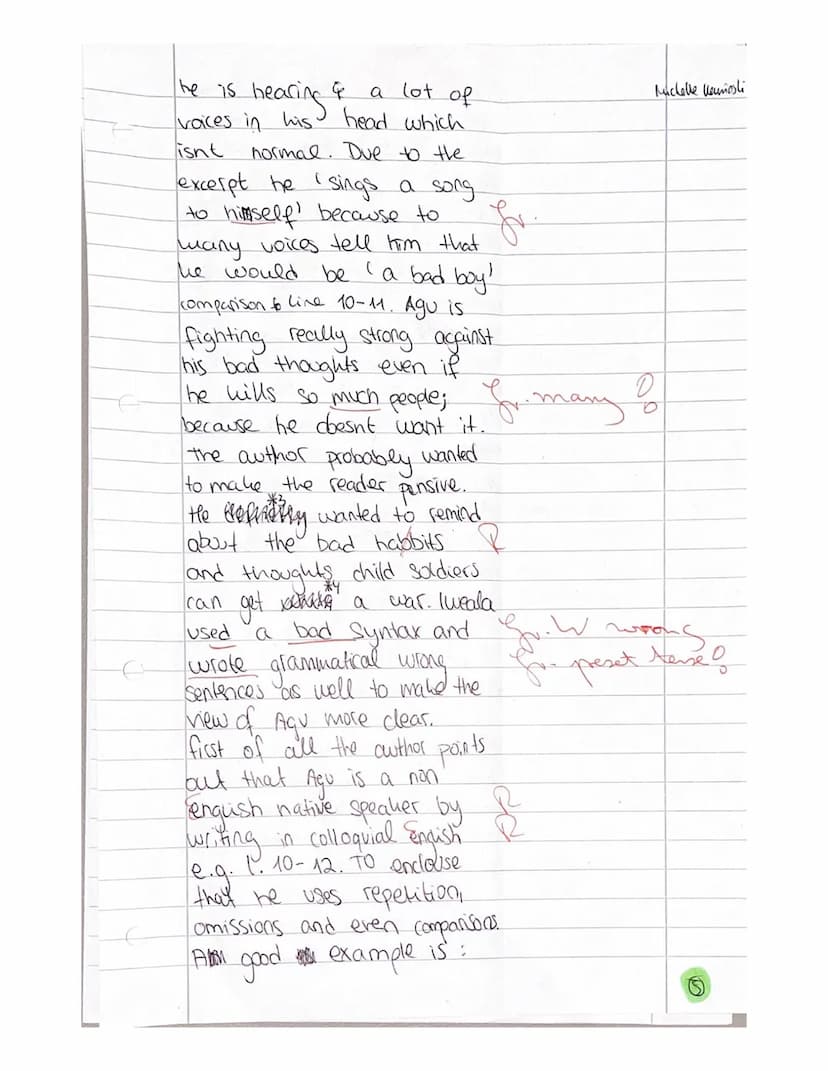 he is hearing & a lot of
Michelle
voices in his head which
isnt normal. Due to the
excerpt he 'sings a song
to himself' because to
Gr.
many voices tell him that
he would be 'a bad boy'
comparison to line 10-11. Agu is
fighting really strong against
his bad thoughts even if
he kills so much people;
Gr. many !
because he doesnt want it.
the author probably wanted
to make the reader pensive.
He *3 wanted to remind
about the bad habbits
R
and thoughts child soldiers
can get *4 a war. Iweala
used a bad syntax and
Gr. W wrong
wrote grammatical wrong
Gr. preset tense!
sentences as well to make the
view of Agu more clear.
first of all the author points
out that Agu is a non
English native speaker by
R
writing in colloquial English
R
e.g. l. 10-12. TO enclouse
that he uses repetition,
omissions and even comparisons.
A good example is:
5